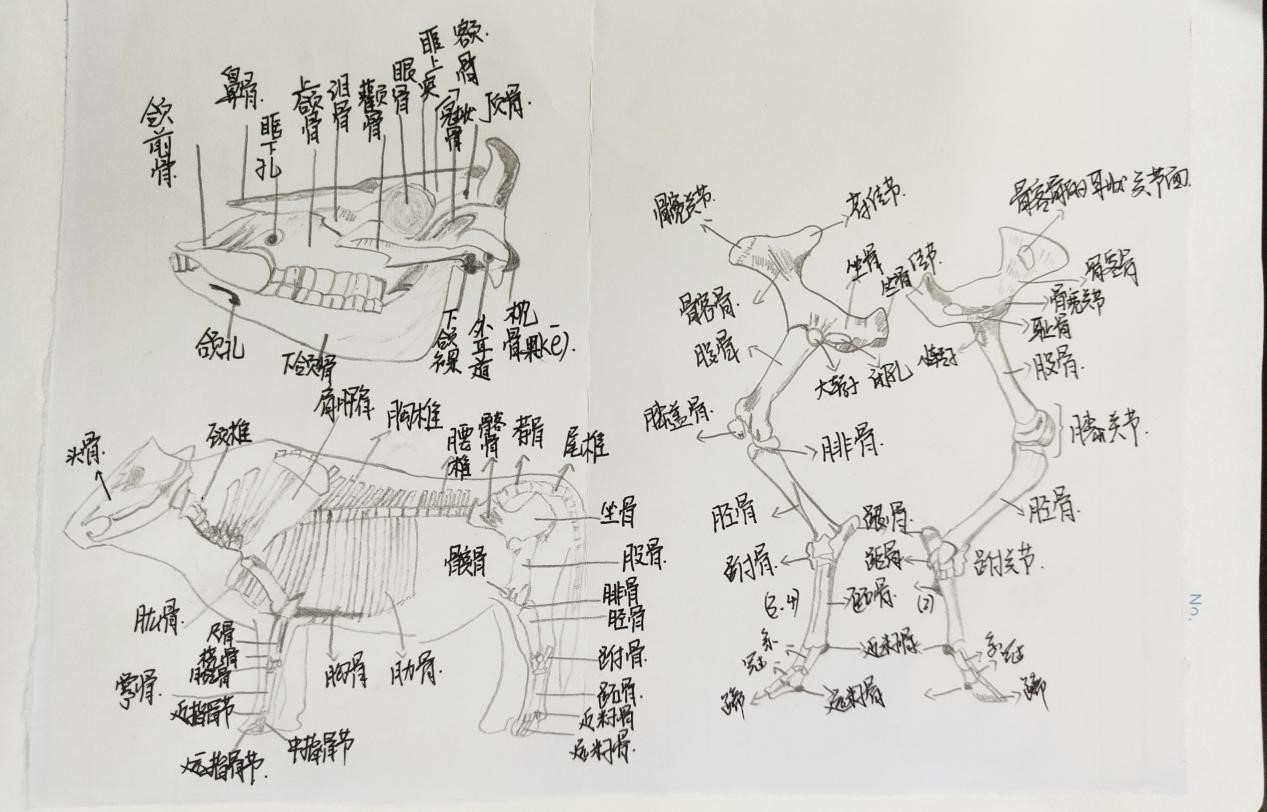 颌前骨
鼻骨.
眶下孔
上颌骨
泪骨
颧骨
眼骨
眶上突
额骨
顶骨.
颌孔
下颌骨
下颌髁
外耳道
枕骨髁(kē).
头骨.
颈椎
肩胛骨
胸椎
腰椎
荐骨
尾椎
坐骨
股骨.
髋骨
腓骨
胫骨
跗骨.
跖骨.
近籽骨
远籽骨.
肱骨.
尺骨
桡骨
掌骨.
近指骨节
中指骨节
远指骨节.
胸骨
肋骨.
髋关节
坐骨
坐骨结节
髂骨.
股骨
大转子
闭孔
小转子
膝盖骨.
腓骨.
胫骨
跗骨
(3.4)
跖骨.
跟骨.
距骨
(2)
近籽骨
系
冠
蹄
远籽骨
髂骨的耳状关节面
髋关节
耻骨
股骨.
膝关节.
胫骨.
跗关节.
系
冠
蹄
No.